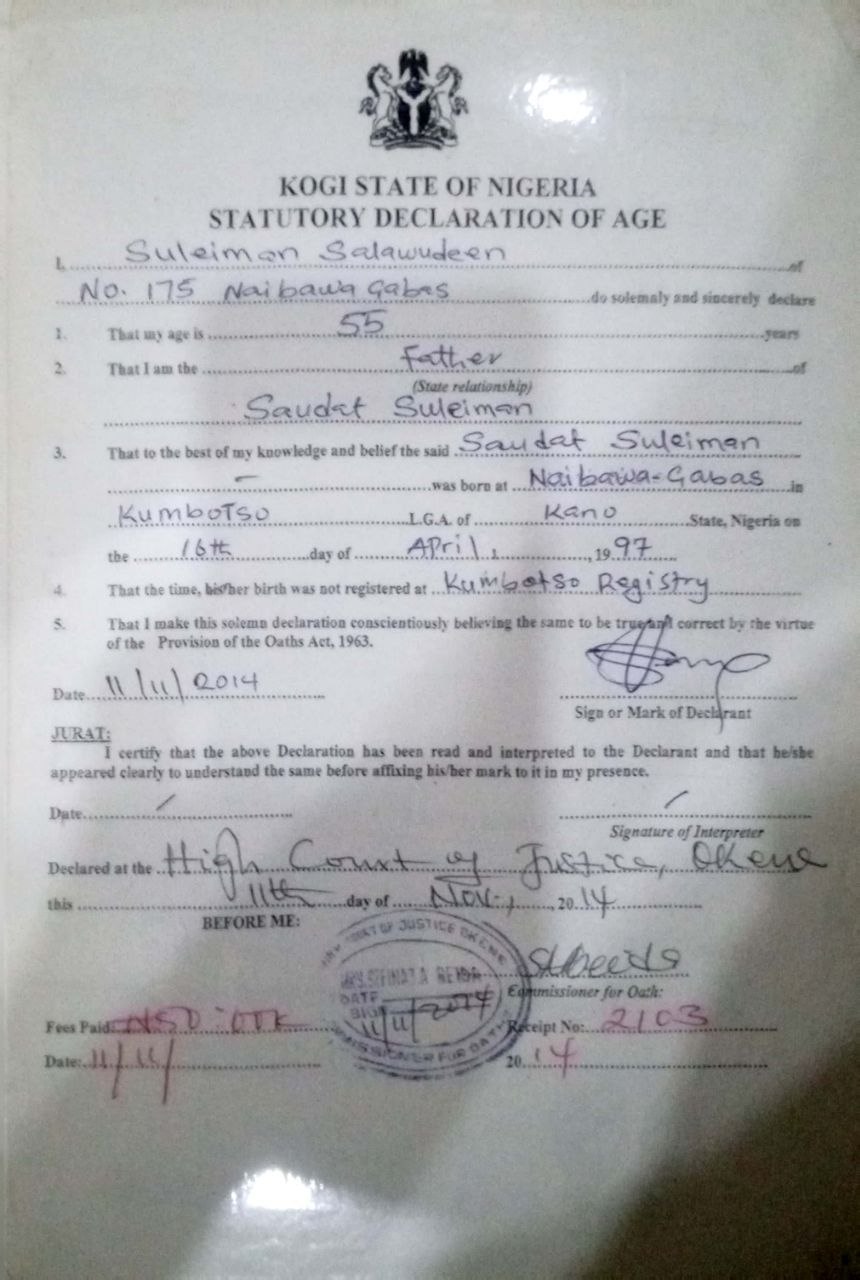 KOGI STATE OF NIGERIA
STATUTORY DECLARATION OF AGE
I, Suleiman Salawudeen of
No. 175 Naibawa Gabas do solemaly and sincerely declare
1. That my age is 55 years
2. That I am the Father of
(State relationship)
Saudat Suleiman
3. That to the best of my knowledge and belief the said Saudat Suleiman
– was born at Naibawa-Gabas in
Kumbotso L.G.A. of Kano State, Nigeria on
the 16th day of April, 1997
4. That the time, his/her birth was not registered at Kumbotso Registry
5. That I make this solemn declaration conscientiously believing the same to be true and correct by the virtue
of the Provision of the Oaths Act, 1963.
Date 11/11/2014
Sign or Mark of Declarant
JURAT:
I certify that the above Declaration has been read and interpreted to the Declarant and that he/she
appeared clearly to understand the same before affixing his/her mark to it in my presence.
Date /
/
Signature of Interpreter
Declared at the High Court of Justice, Okene
this 11th day of Nov., 2014
BEFORE ME:
COURT OF JUSTICE OKENE
MRS.
DATE
SIGN
11/11/2014
COMMISSIONER FOR OATHS
Commissioner for Oath:
Fees Paid: Receipt No: 2103
Date: 11/11/ 2014